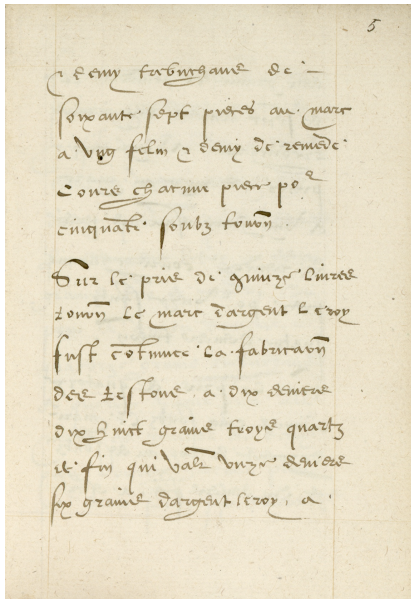 5
& demy trebuchans de
soixante sept pieces au marc
a ung felin & demy de remede
Coure chacune piece po^r
cinquate soubz tourn
Sur le prie de quinze livres
tourn le marc dargent le roy
fust continuee la fabricaon
des testons a dix deniers
dix huict grains troys quartz
de fin qui valt unze deniers
six grains dargent le roy, a